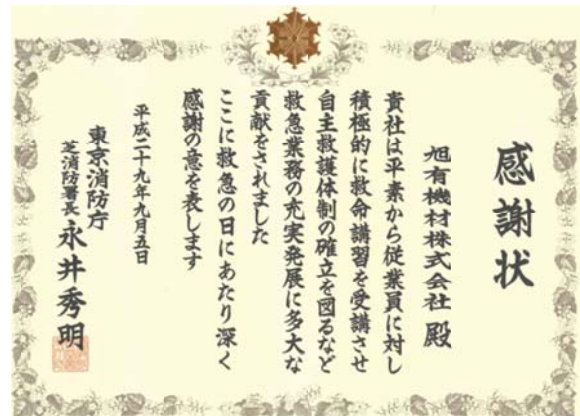 感謝状
旭有機材株式会社 殿
貴社は平素から従業員に対し
積極的に救命講習を受講させ
自主救護体制の確立を図るなど
救急業務の充実発展に多大な
貢献をされました
ここに救急の日にあたり深く
感謝の意を表します
平成二十九年九月五日
東京消防庁
芝消防署長 永井秀明